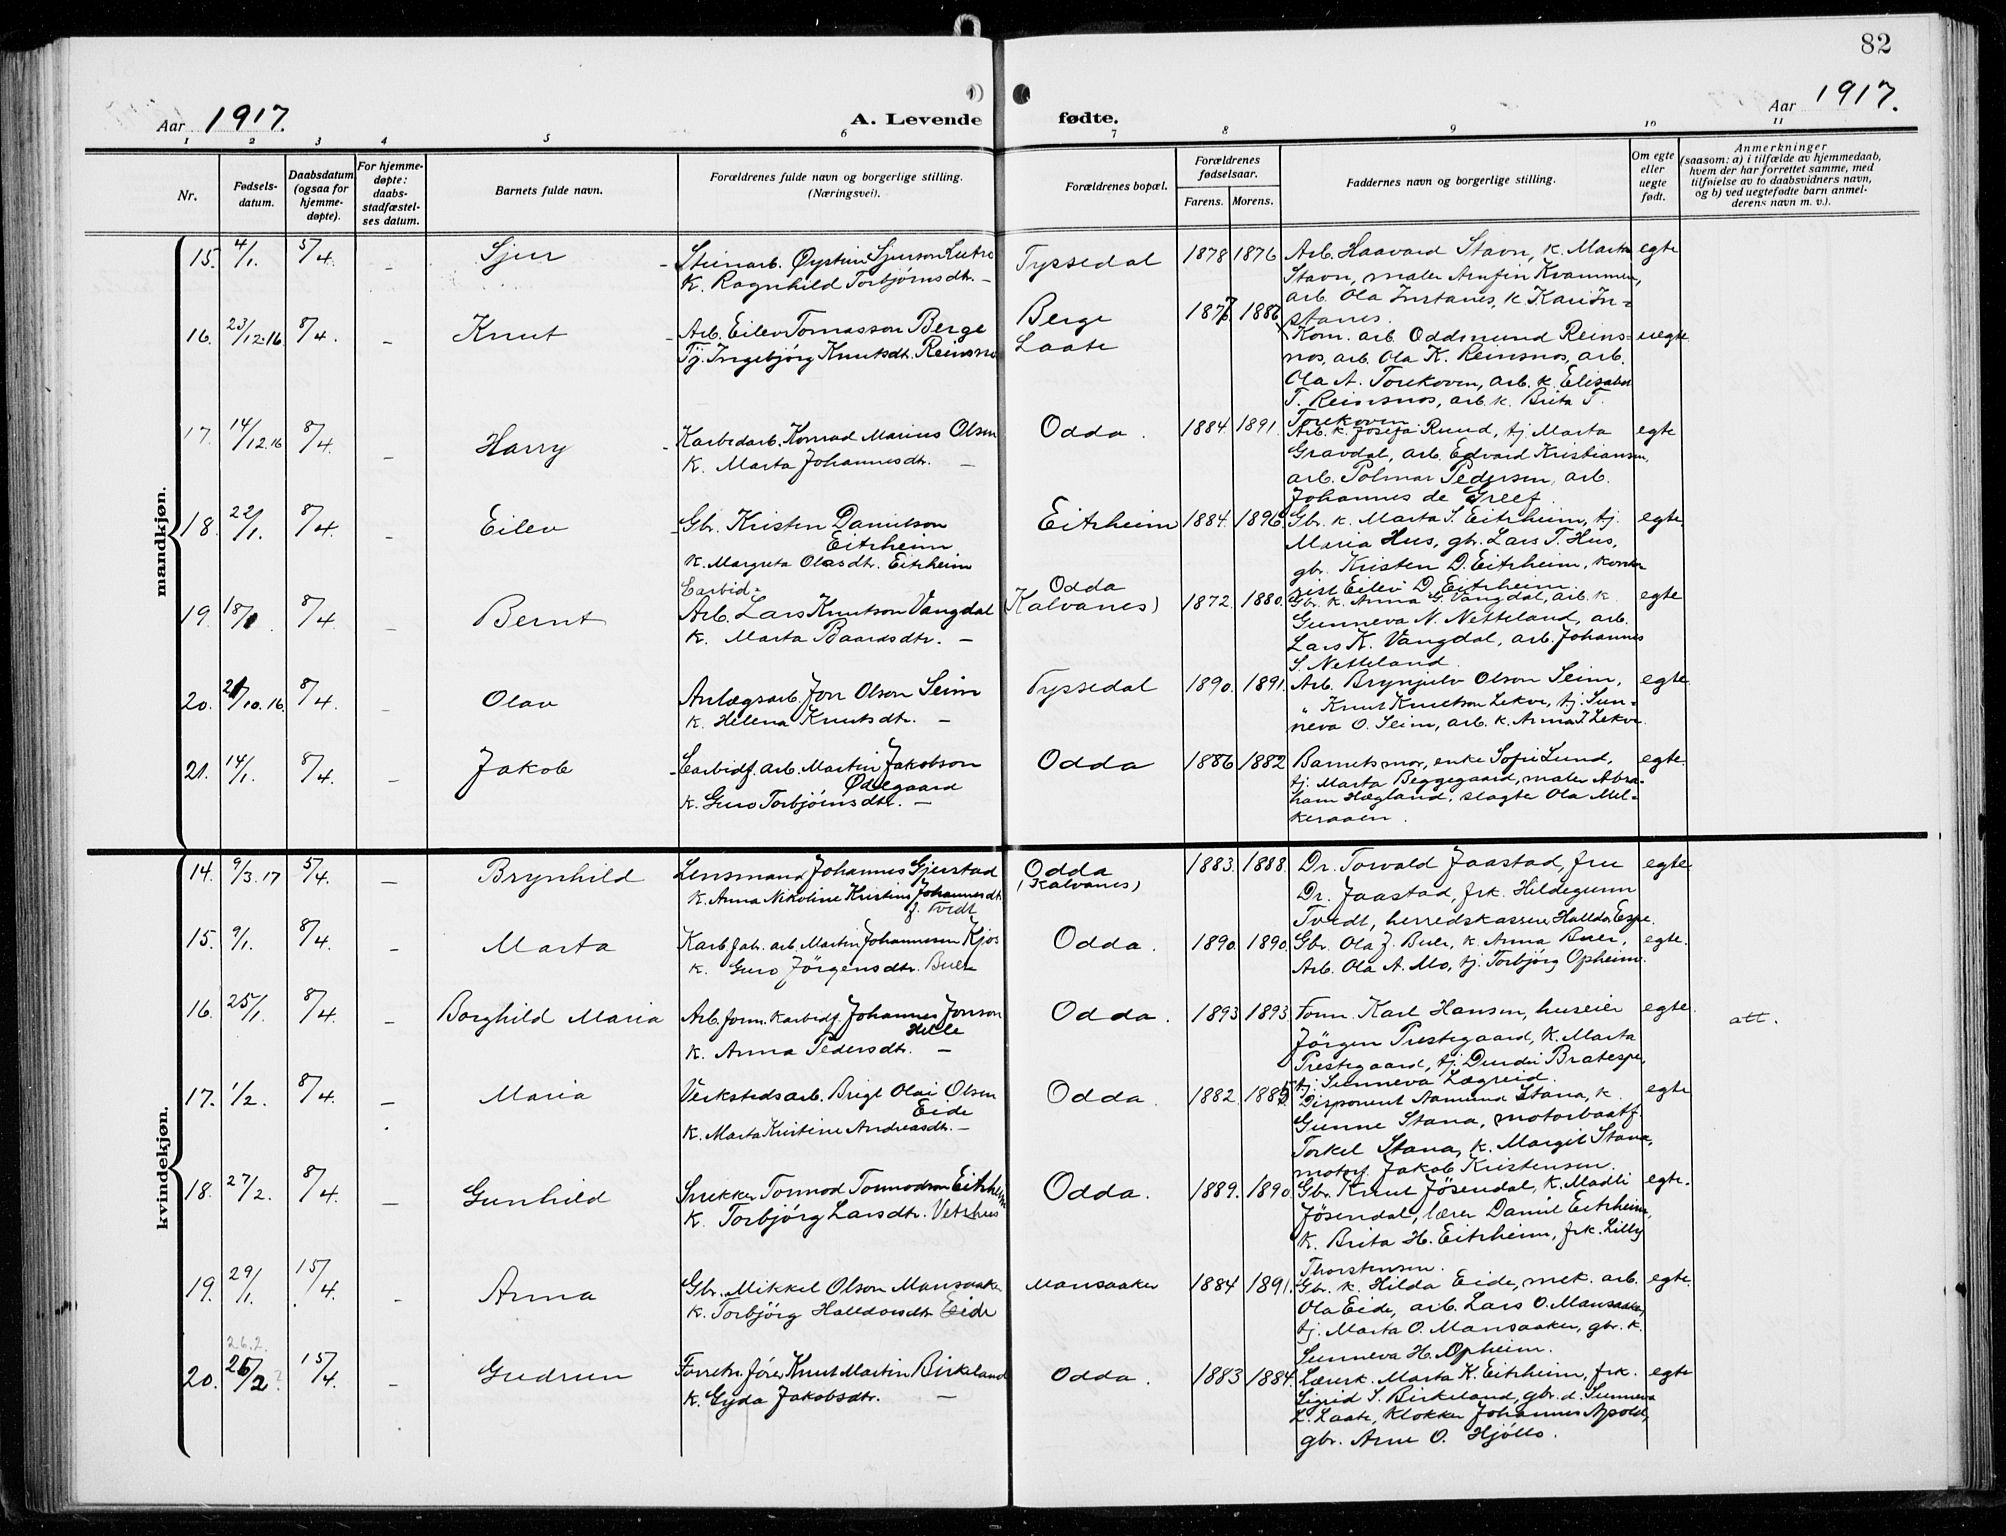 82
Aar 1917.
A. Levende fødte.
Aar 1917.
1 2 3 4 5 6 7 8 9 10 11
Nr.
Fødsels-
datum.
Daabsdatum
(ogsaa for
hjemme-
døpte).
For hjemme-
døpte:
daabs-
stadfæstel-
ses datum.
Barnets fulde navn.
Forældrenes fulde navn og borgerlige stilling.
(Næringsvei).
Forældrenes bopæl.
Forældrenes
fødselsaar.
Farens. Morens.
Faddernes navn og borgerlige stilling.
Om egte
eller
uegte
født.
Anmerkninger
(saasom: a) i tilfælde av hjemmedaab,
hvem der har forrettet samme, med
tilføielse av to daabsvidners navn,
og b) ved uegtefødte barn anmel-
derens navn m. v.).
mandkjøn.
15. 4/1. 5/4. – Sjur
Stenarb. Øystein Sjurson Lutro
k. Ragnhild Torbjørnsdtr. –
Tyssedal 1878 1876
Arb. Haavard Stavn, k. Marta
Stavn, maler Arnfin Kvammen,
arb. Ola Instanes, k. Kari In-
stanes.
egte
16. 23/12.16 8/4. – Knut
Arb. Eilev Tomasson Berge
Tj. Ingebjörg Knutsdt. Reinsnos
Berge
Laate
1886
Kom. arb. Oddmund Reins-
nos, arb. Ola K. Reinsnos, arb.
Ola A. Torekoven, arb. k. Elisabet
T. Reinsnos, arb. k. Brita T.
Torekoven
uegte
17. 14/12.16 8/4. – Harry
Karbidarb. Konrad Marius Olsen
k. Marta Johannesdtr. –
Odda. 1884. 1891.
Arb. k. Josefa Ruud, tj. Marta
Gravdal, arb. Edvard Kristiansen,
arb. Polmar Pedersen, arb.
Johannes de Greef.
egte
18. 22/1. 8/4. – Eilev
Gbr. Kristen Danielson
Eitrheim
k. Margreta Olasdtr. Eitrheim
Eitrheim 1884. 1896.
Gbr. k. Marta S. Eitrheim, tj.
Maria Hus, gbr. Lars T. Hus,
gbr. Kristen D. Eitrheim, kontor
rist Eilev D. Eitrheim.
egte
19. 18/1. 8/4. – Bernt
Carbid-
Arb. Lars Knutson Vangdal
k. Marta Baardsdtr. –
Odda
(Kalvanes) 1872. 1880.
Gbr. k. Anna G. Vangdal, arb. k.
Gunneva N. Netteland, arb.
Lars K. Vangdal, arb. Johannes
S. Netteland.
egte
20. 21/10.16 8/4. Olav
Anlægsarb. Jon Olson Seim
k. Helena Knutsdtr. –
Tyssedal 1890. 1891.
Arb. Brynjulv Olson Seim,
" Knut Knutson Lekve, tj. Sun-
neva O. Seim, arb. k. Anna I. Lekve
egte
21. 14/1. 8/4. – Jakob
Carbidf. arb. Martin Jakobson
Ødegaard
k. Guro Torbjörnsdtr. –
Odda 1886 1882
Barnets mor, enke Sofie Lund,
tj. Marta Beggegaard, maler Abra-
ham Hægland, slagte Ola Mel-
keraaen.
egte.
kvindekjøn.
14. 9/3.17 5/4. – Brynhild
Lensmand Johannes Gjerstad
k. Anna Nikoline Kristine Johannesdt.
f. Tvedt
Odda
(Kalvanes) 1883. 1888.
Dr. Torvald Jaastad, fru
Dr. Jaastad, frk. Hildegunn
Tvedt, herredskasserer Halldor Espe.
egte
15. 9/1. 8/4. – Marta
Karb.fab. arb. Martin Johannesen Kjos
k. Guro Jörgensdtr. Buer
Odda. 1890. 1890.
Gbr. Ola J. Buer, k. Anna Buer,
Arb. Ola A. Mo, tj. Torbjörg Opheim.
egte.
16. 25/1. 8/4. – Borghild Maria
Arb. form. Karbidf. Johannes Jonson
Helle
k. Anna Pedersdtr. –
Odda. 1893 1893
Form. Karl Hansen, huseier
Jörgen Prestegaard, k. Marta
Prestegaard, tj. Durdei Bratespe,
tj. Sunneva Lægreid.
egte.
att.
17. 1/2. 8/4. – Maria
Verkstedsarb. Brigt Olai Olsen
Eide
k. Marta Kristine Andreasdtr. –
Odda. 1882. 1885.
Disponent Aamund Stana, k.
Gunne Stana, motorbaatf.
Torkel Stana, k. Margit Stana,
motorf. Jakob Kristensen.
egte
18. 27/2. 8/4. – Gunhild
Snekker Tormod Tormodson Eitrheim
k. Torbjörg Larsdtr. Vetrhus
Odda. 1889. 1890.
Gbr. Knut Jösendal, k. Madli
Jösendal, lærer Daniel Eitrheim,
k. Brita H. Eitrheim, frk. Lilly
Thorstensen.
egte.
19. 29/1. 15/4. – Anna
Gbr. Mikkel Olson Mansaaker
k. Torbjörg Halldorsdtr. Eide
Mansaaker 1884 1891.
Gbr. k. Hilda Eide, mek. arb.
Ola Eide, arb. Lars O. Mansaaker,
tj. Marta O. Mansaaker, gbr. k.
Sunneva H. Opheim.
egte
26.2.
20. 26/2. 15/4. – Gudrun
Forretn.förer Knut Martin Birkeland
k. Gyda Jakobsdtr. –
Odda. 1883 1884.
Lærerk. Marta K. Eitrheim, frk.
Sigrid S. Birkeland, gbr. d. Sunneva
L. Laate, klokker Johannes Apold,
gbr. Arne O. Hjöllo.
egte